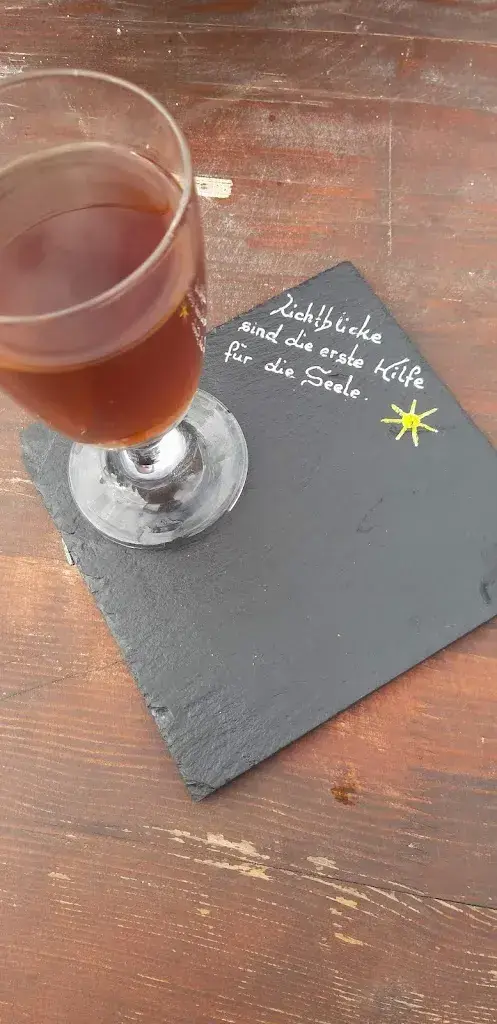 Lichtblicke
sind die erste Hilfe
für die Seele.